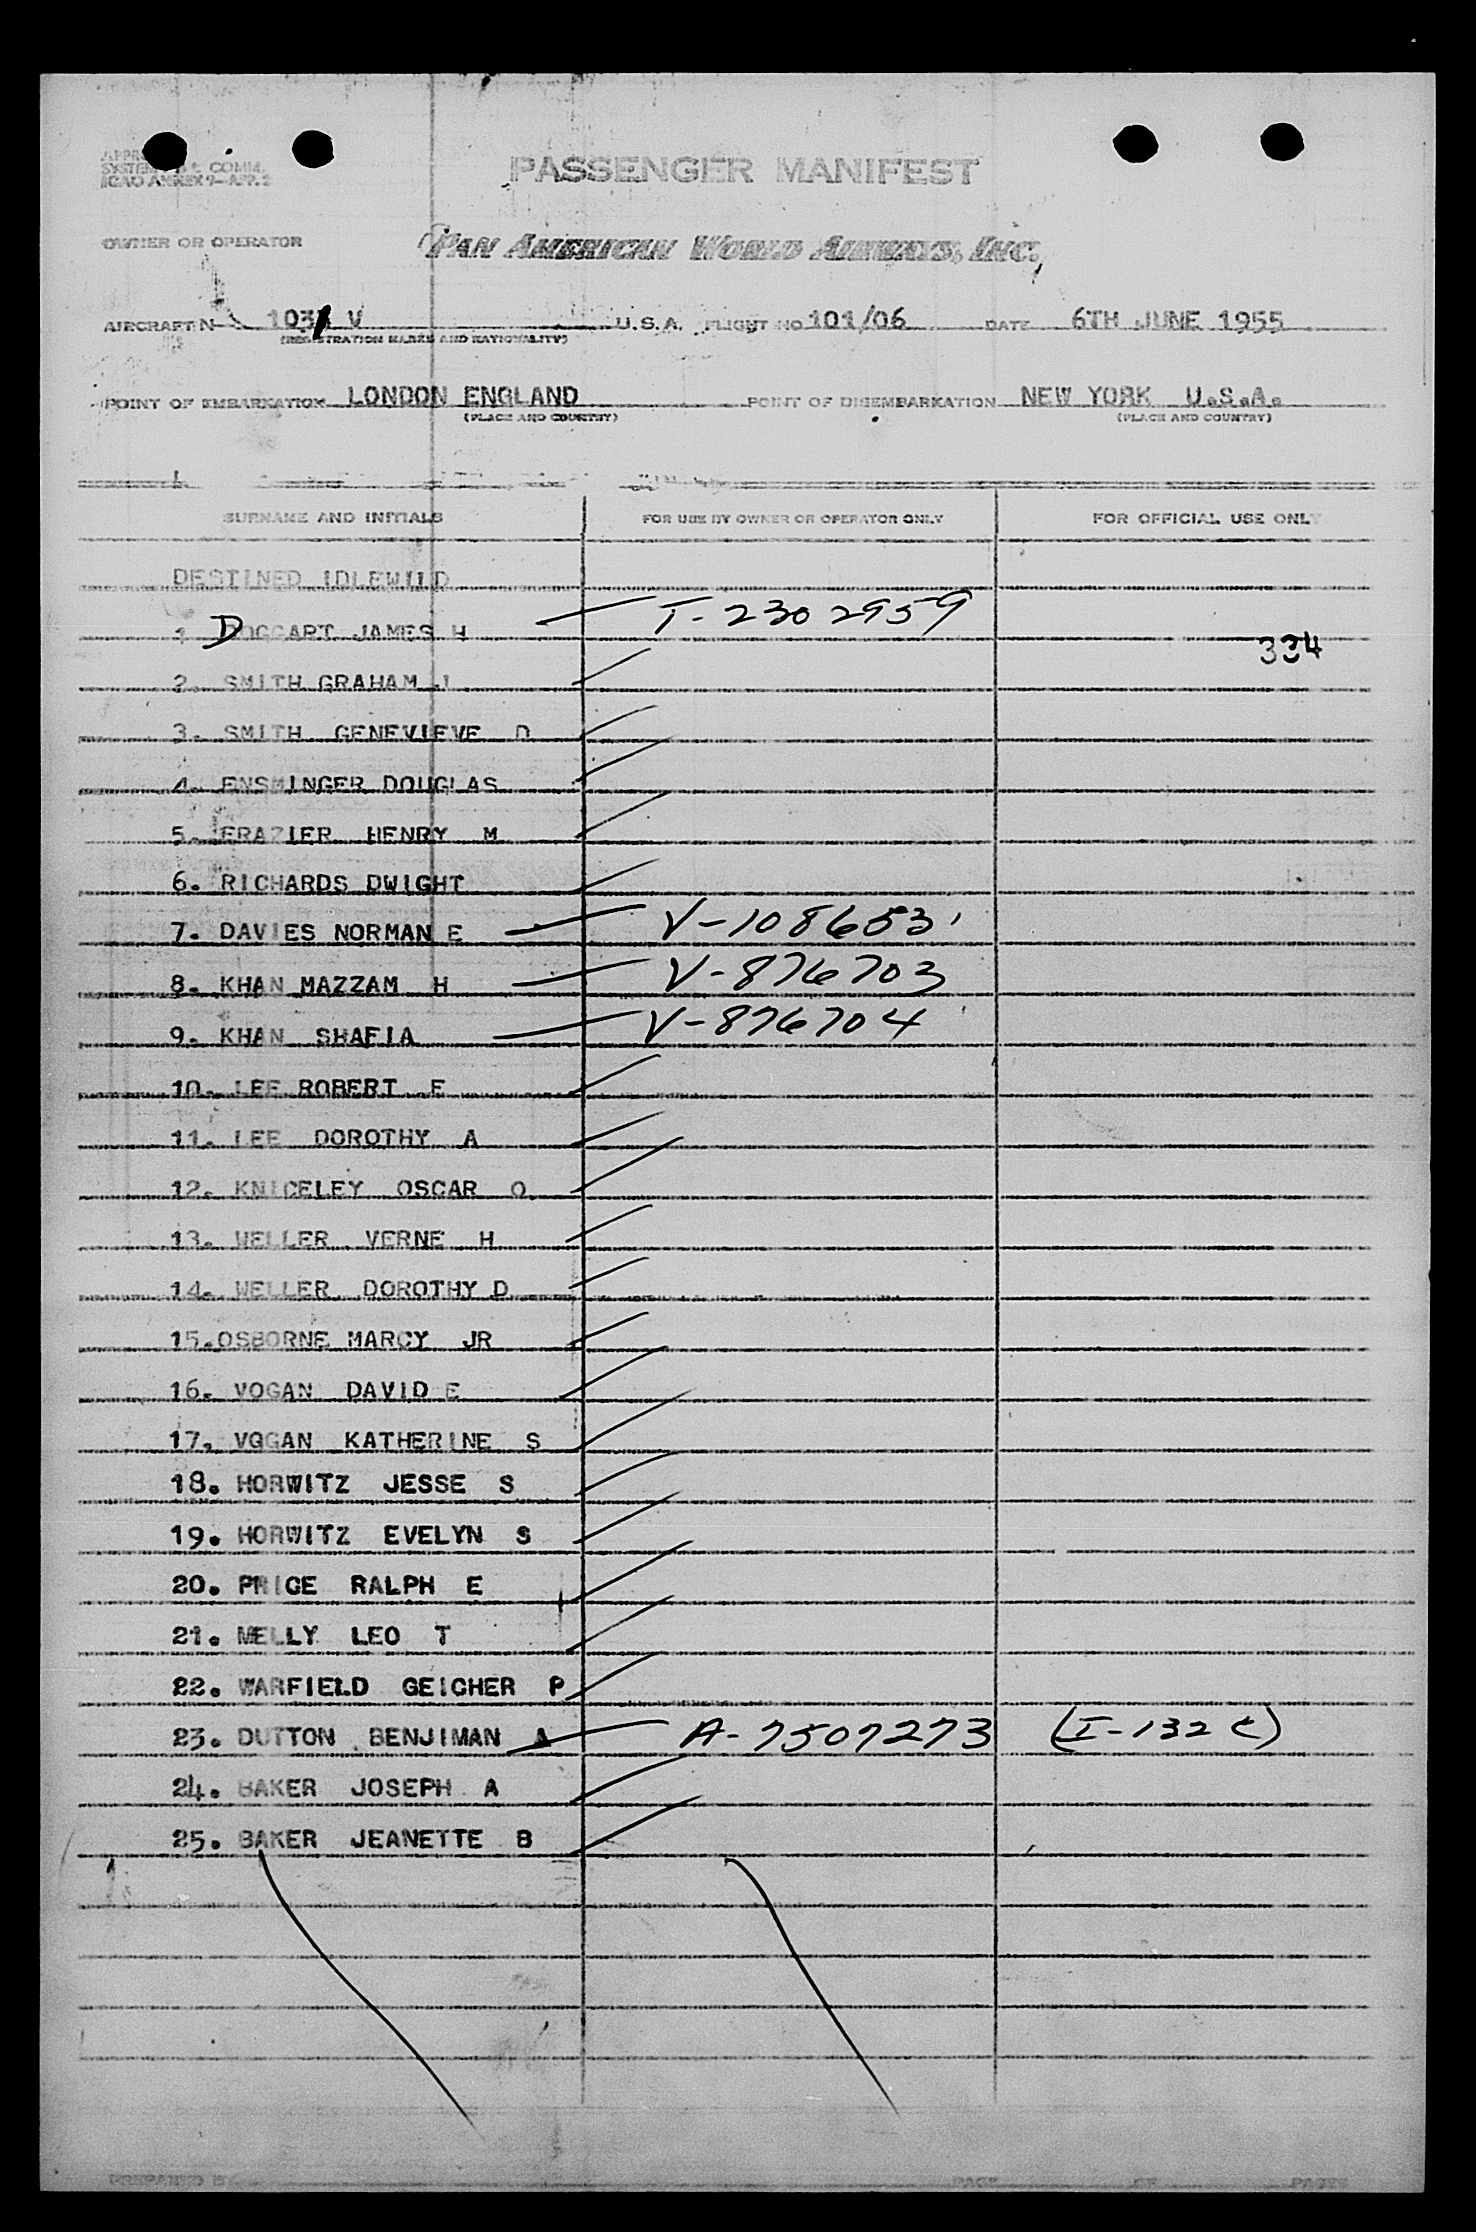 PASSENGER MANIFEST
ICAO ANNEX 9-APP. 2
OWNER OR OPERATOR PAN AMERICAN WORLD AIRWAYS, INC.
AIRCRAFT N 1031 V U.S.A. FLIGHT NO 101/06 DATE 6TH JUNE 1955
(REGISTRATION MARKS AND NATIONALITY)
POINT OF EMBARKATION LONDON ENGLAND POINT OF DISEMBARKATION NEW YORK U.S.A.
(PLACE AND COUNTRY) (PLACE AND COUNTRY)
SURNAME AND INITIALS FOR USE BY OWNER OR OPERATOR ONLY FOR OFFICIAL USE ONLY
DESTINED IDLEWILD
1 DOGGART JAMES H T-2302959
334
2. SMITH GRAHAM J
3. SMITH GENEVIEVE D
4. ENSMINGER DOUGLAS
5. FRAZIER HENRY M
6. RICHARDS DWIGHT
7. DAVIES NORMAN E V-1086653
8. KHAN MAZZAM H V-876703
9. KHAN SHAFIA V-876704
10. LEE ROBERT E
11. LEE DOROTHY A
12. KNICELEY OSCAR O
13. WELLER VERNE H
14. WELLER DOROTHY D
15.OSBORNE MARCY JR
16. VOGAN DAVID E
17. VOGAN KATHERINE S
18. HORWITZ JESSE S
19. HORWITZ EVELYN S
20. PRICE RALPH E
21. MELLY LEO T
22. WARFIELD GEICHER P
23. DUTTON BENJIMAN A A-7507273 (I-132 c)
24. BAKER JOSEPH A
25. BAKER JEANETTE B
PREPARED BY PAGE OF PAGES